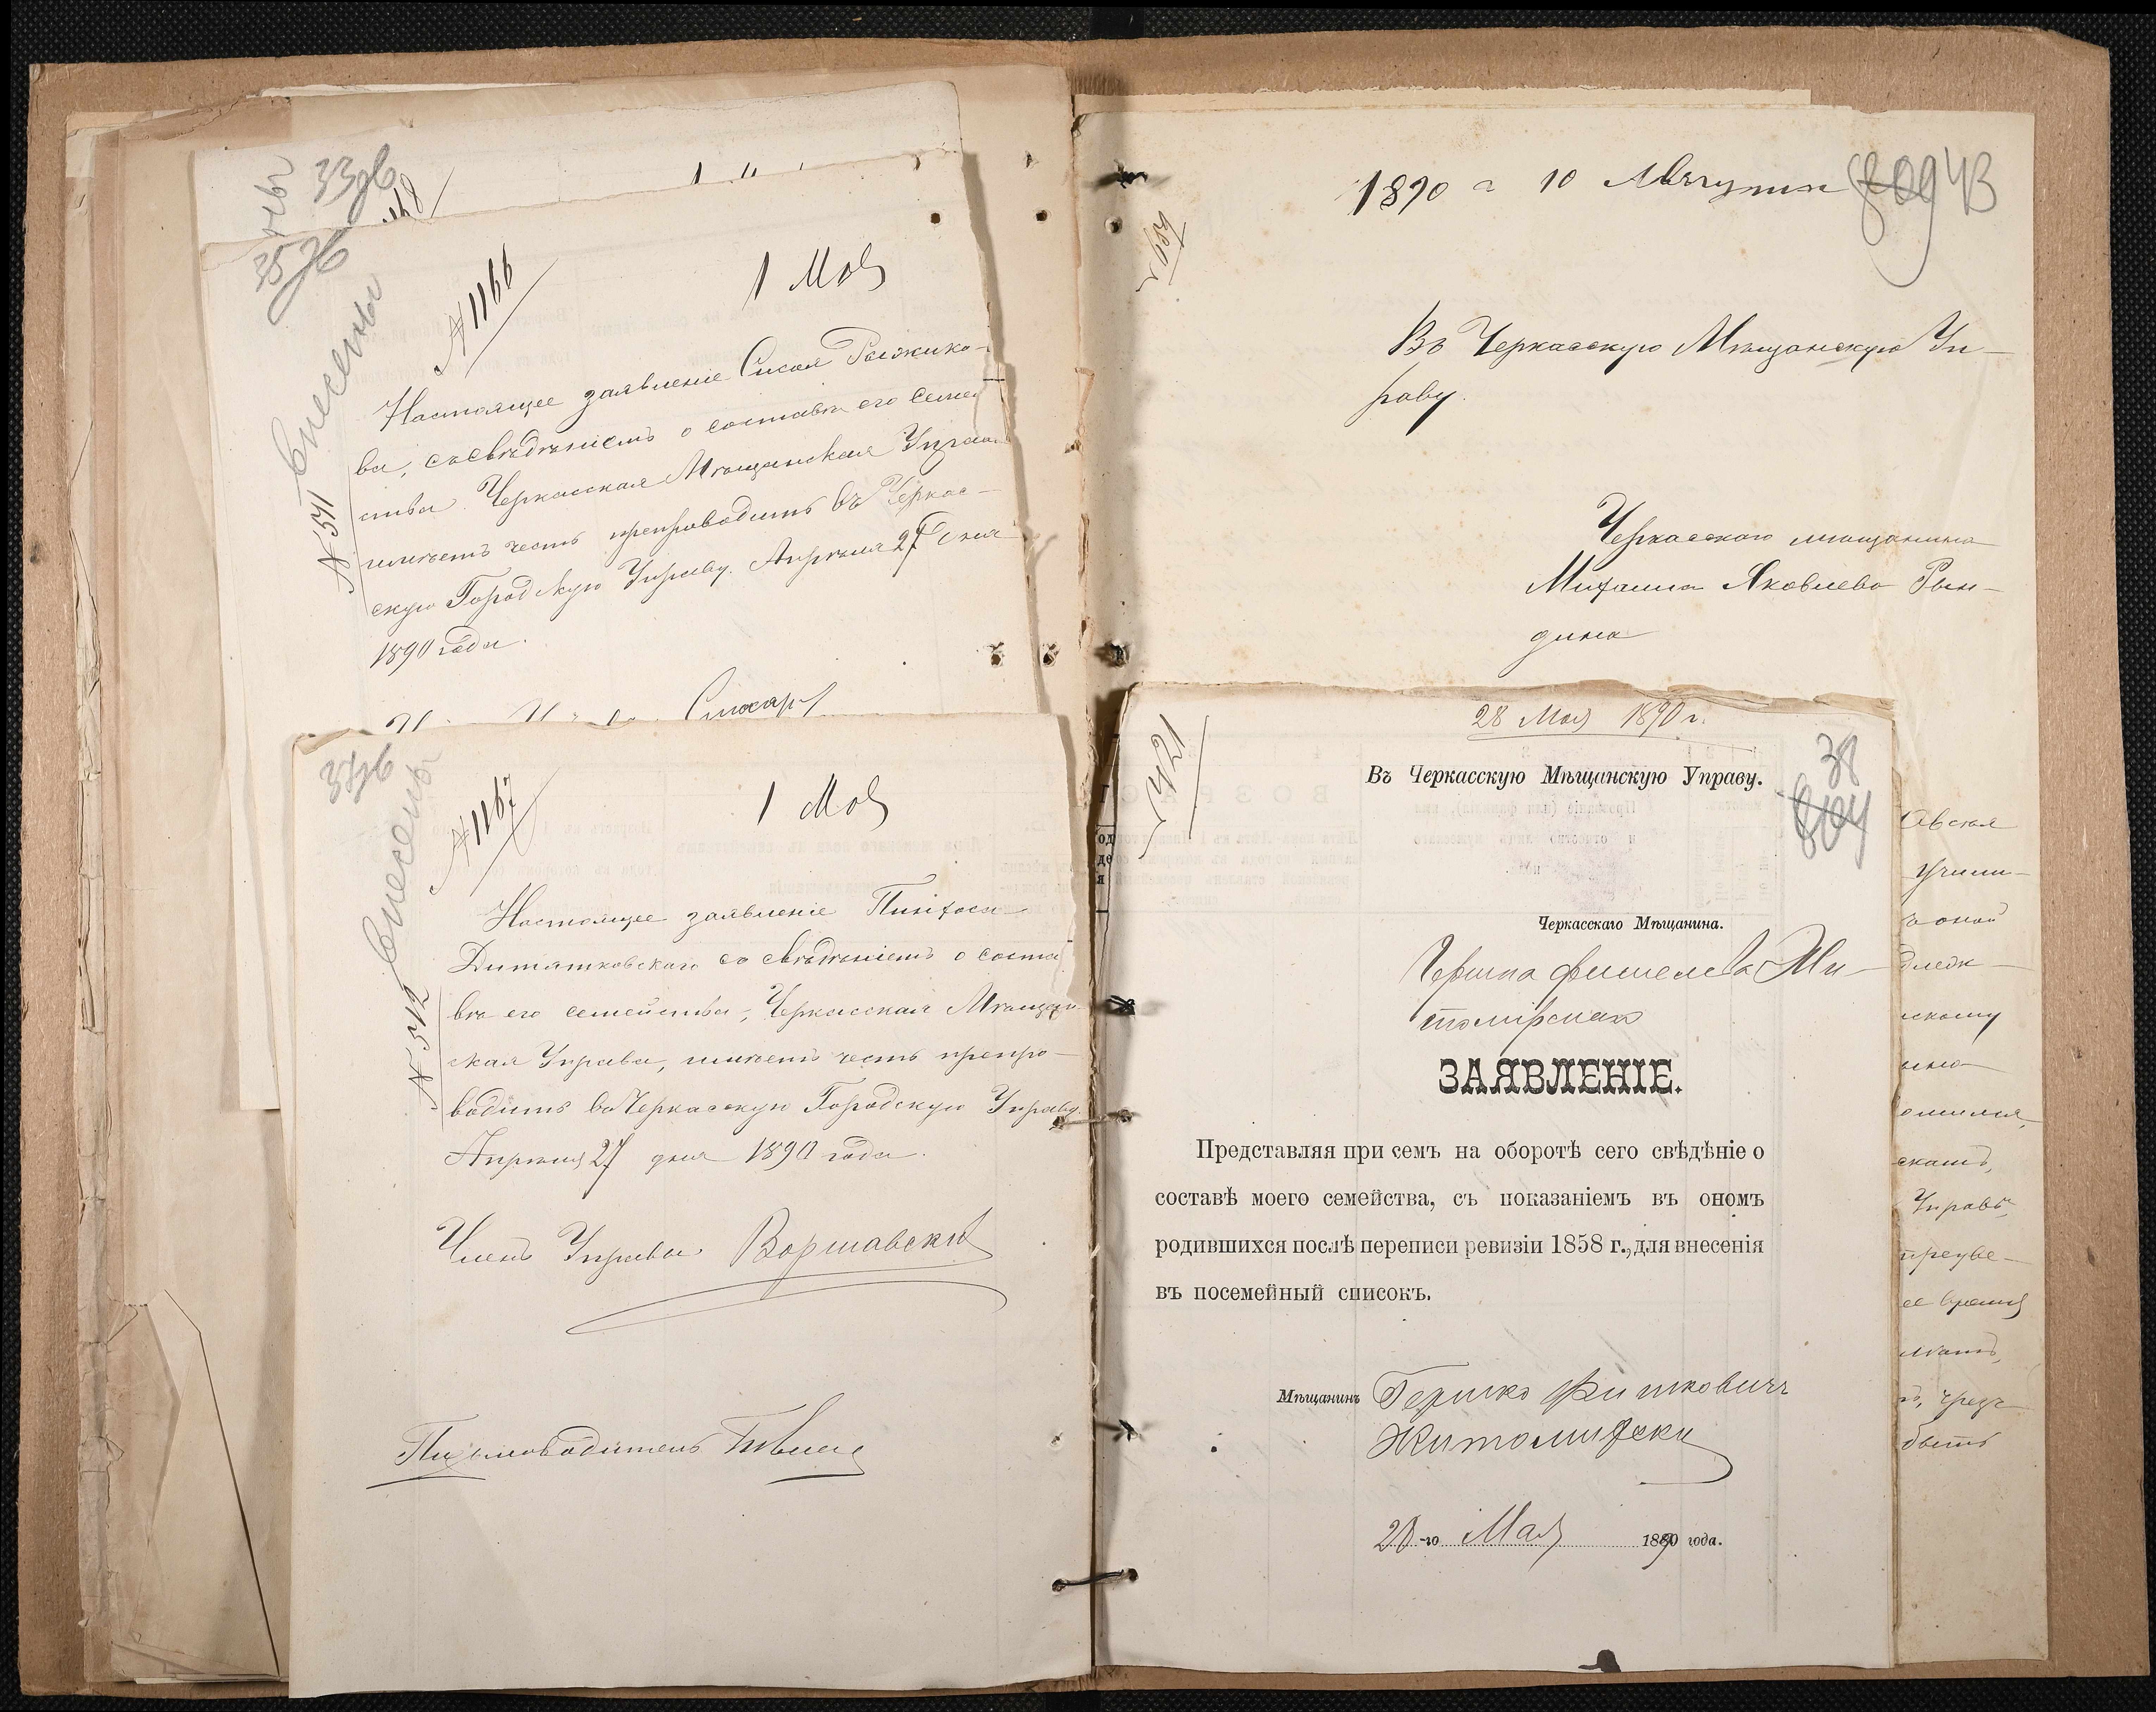 33об
35об
внесены
№ 1166
1 Мая
№ 541
Настоящее заявленіе Сисоя Рыжико-
ва, со свѣдѣніемъ о составѣ его семей
ства Черкасская Мѣщанская Управа
имѣетъ честь препроводить въ Черкас-
скую Городскую Управу. Апрѣля 27 дня
1890 года.
37об
внесены
№ 1167
1 Мая
№ 542
Настоящее заявленіе
Дитятковскаго со свѣдѣніемъ о соста
вѣ его семейства, Черкасская Мѣщан
ская Управа, имѣетъ честь препро-
водить въ Черкасскую Городскую Управу.
Апрѣля 27 дня 1890 года.
Членъ Управы Варшавскій
Письмоводитель
1890 г 10 Августа
809 43
Въ Черкасскую Мѣщанскую Уп-
раву.
Черкасскаго мѣщанина
Михаила Яковлева Рын-
дина
28 Мая 1890 г.
1421
38
804
Въ Черкасскую Мѣщанскую Управу.
Черкасскаго Мѣщанина.
Гершка Фишелева Жи-
томірскаго
ЗАЯВЛЕНІЕ.
Представляя при семъ на оборотѣ сего свѣдѣніе о
составѣ моего семейства, съ показаніемъ въ ономъ
родившихся послѣ переписи ревизіи 1858 г., для внесенія
въ посемейный списокъ.
Мѣщанинъ Гершко Фишковичъ
Житомирски
28-го Мая 1890 года.
учили-
оной
скому
Управы
время
чрезъ
быть